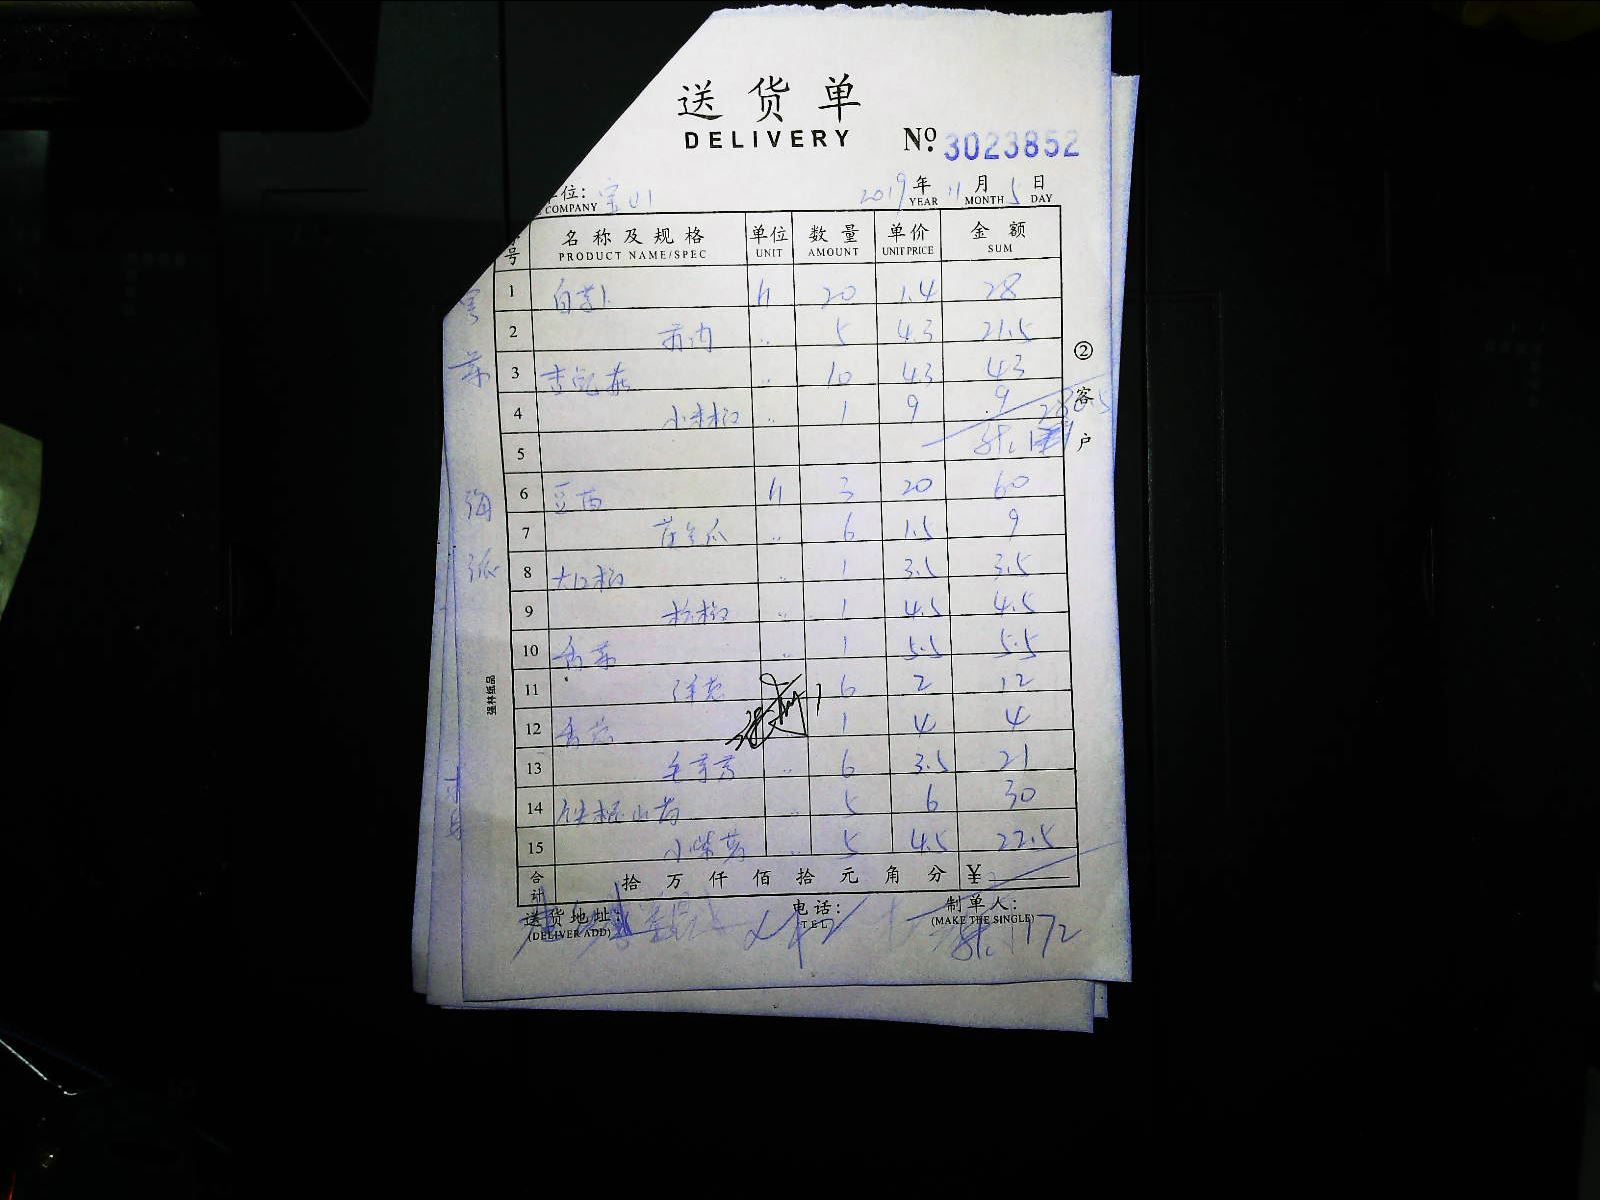 送货单
DELIVERY
No. 3023852
位: 宝山 2019年 11月 5日
COMPANY YEAR MONTH DAY
号 名称及规格 单位 数量 单价 金额
PRODUCT NAME/SPEC UNIT AMOUNT UNIT PRICE SUM
1 白萝卜 斤 20 1.4 28
2 〃 5 4.3 21.5
3 〃 10 4.3 43
4 小米椒 〃 1 9 9
5
6 豆苗 斤 3 20 60
7 〃 6 1.5 9
8 〃 1 3.5 3.5
9 〃 1 4.5 4.5
10 香菜 〃 1 5.5 5.5
11 洋葱 6 2 12
12 香葱 1 4 4
13 毛芋艿 〃 6 3.5 21
14 铁棍山药 〃 5 6 30
15 小紫薯 〃 5 4.5 22.5
合计 拾 万 仟 佰 拾 元 角 分 ¥
送货地址: 电话: 制单人:
(DELIVER ADD) TEL (MAKE THE SINGLE)
172
②客户
强林纸品